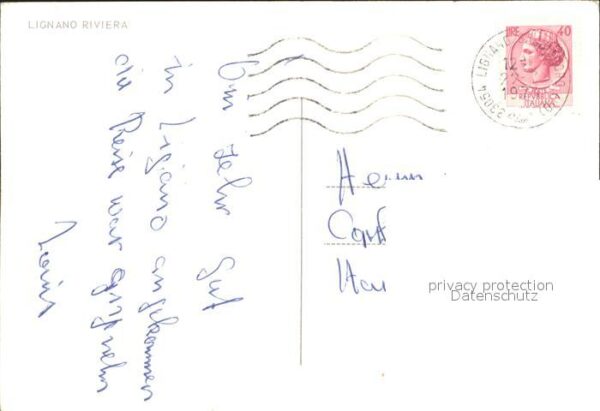 LIGNANO RIVIERA
LIRE 40
REPUBBLICA
ITALIANA
33054 LIGNANO
12
19
Bin sehr gut
in Lignano angekommen
die Reise war angenehm
Louis
Herrn
privacy protection
Datenschutz